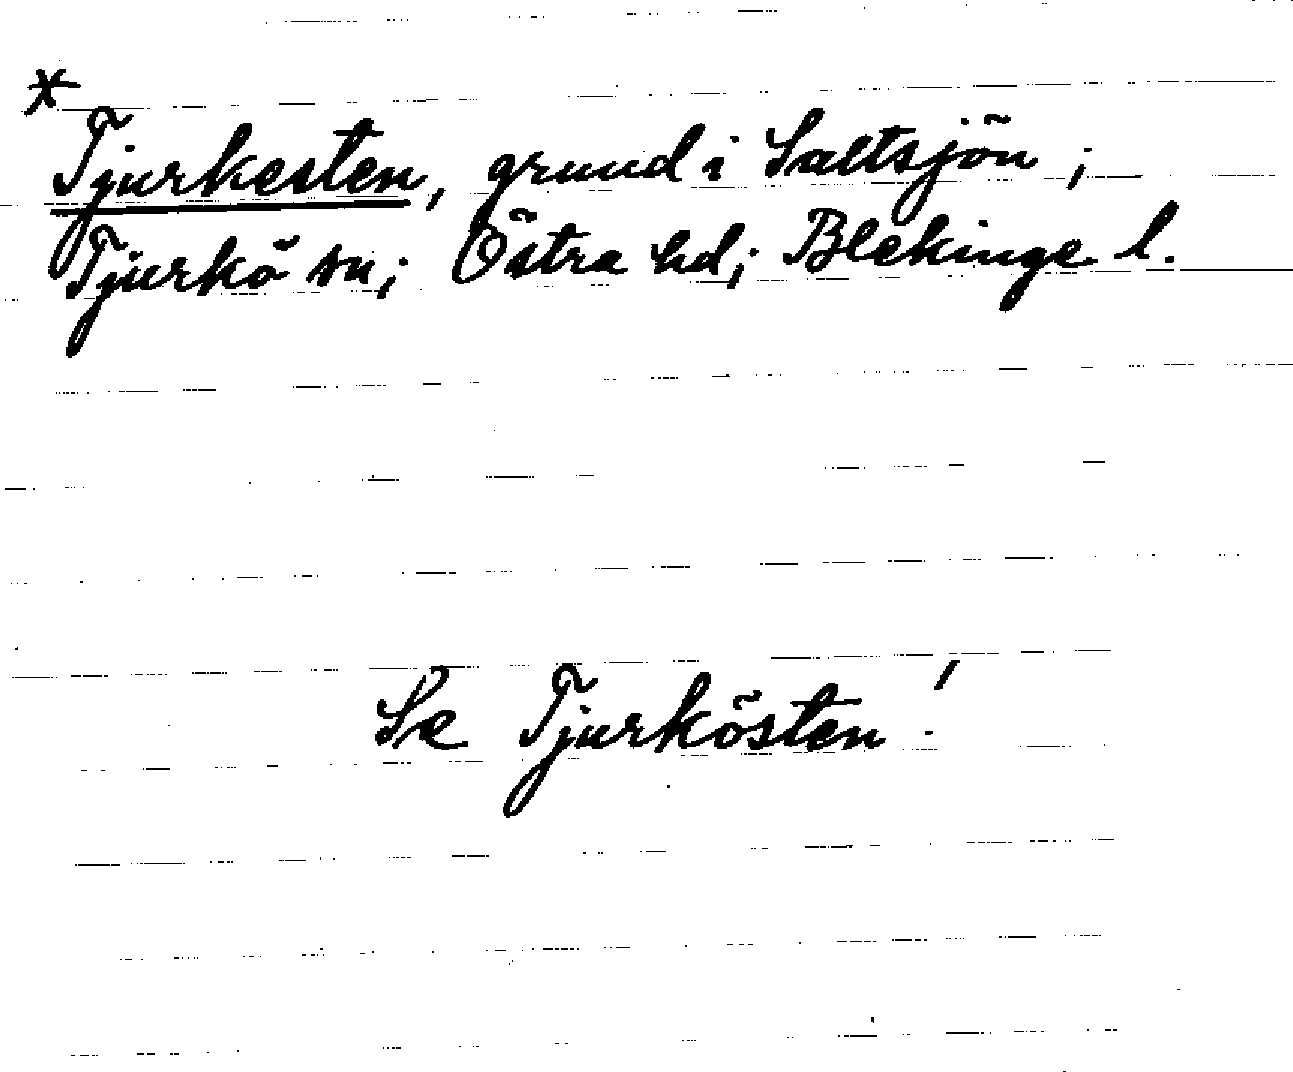 * Tjurkesten, grund i Saltsjön;
Tjurkö sn; Östra hd; Blekinge l.
Se Tjurkösten!